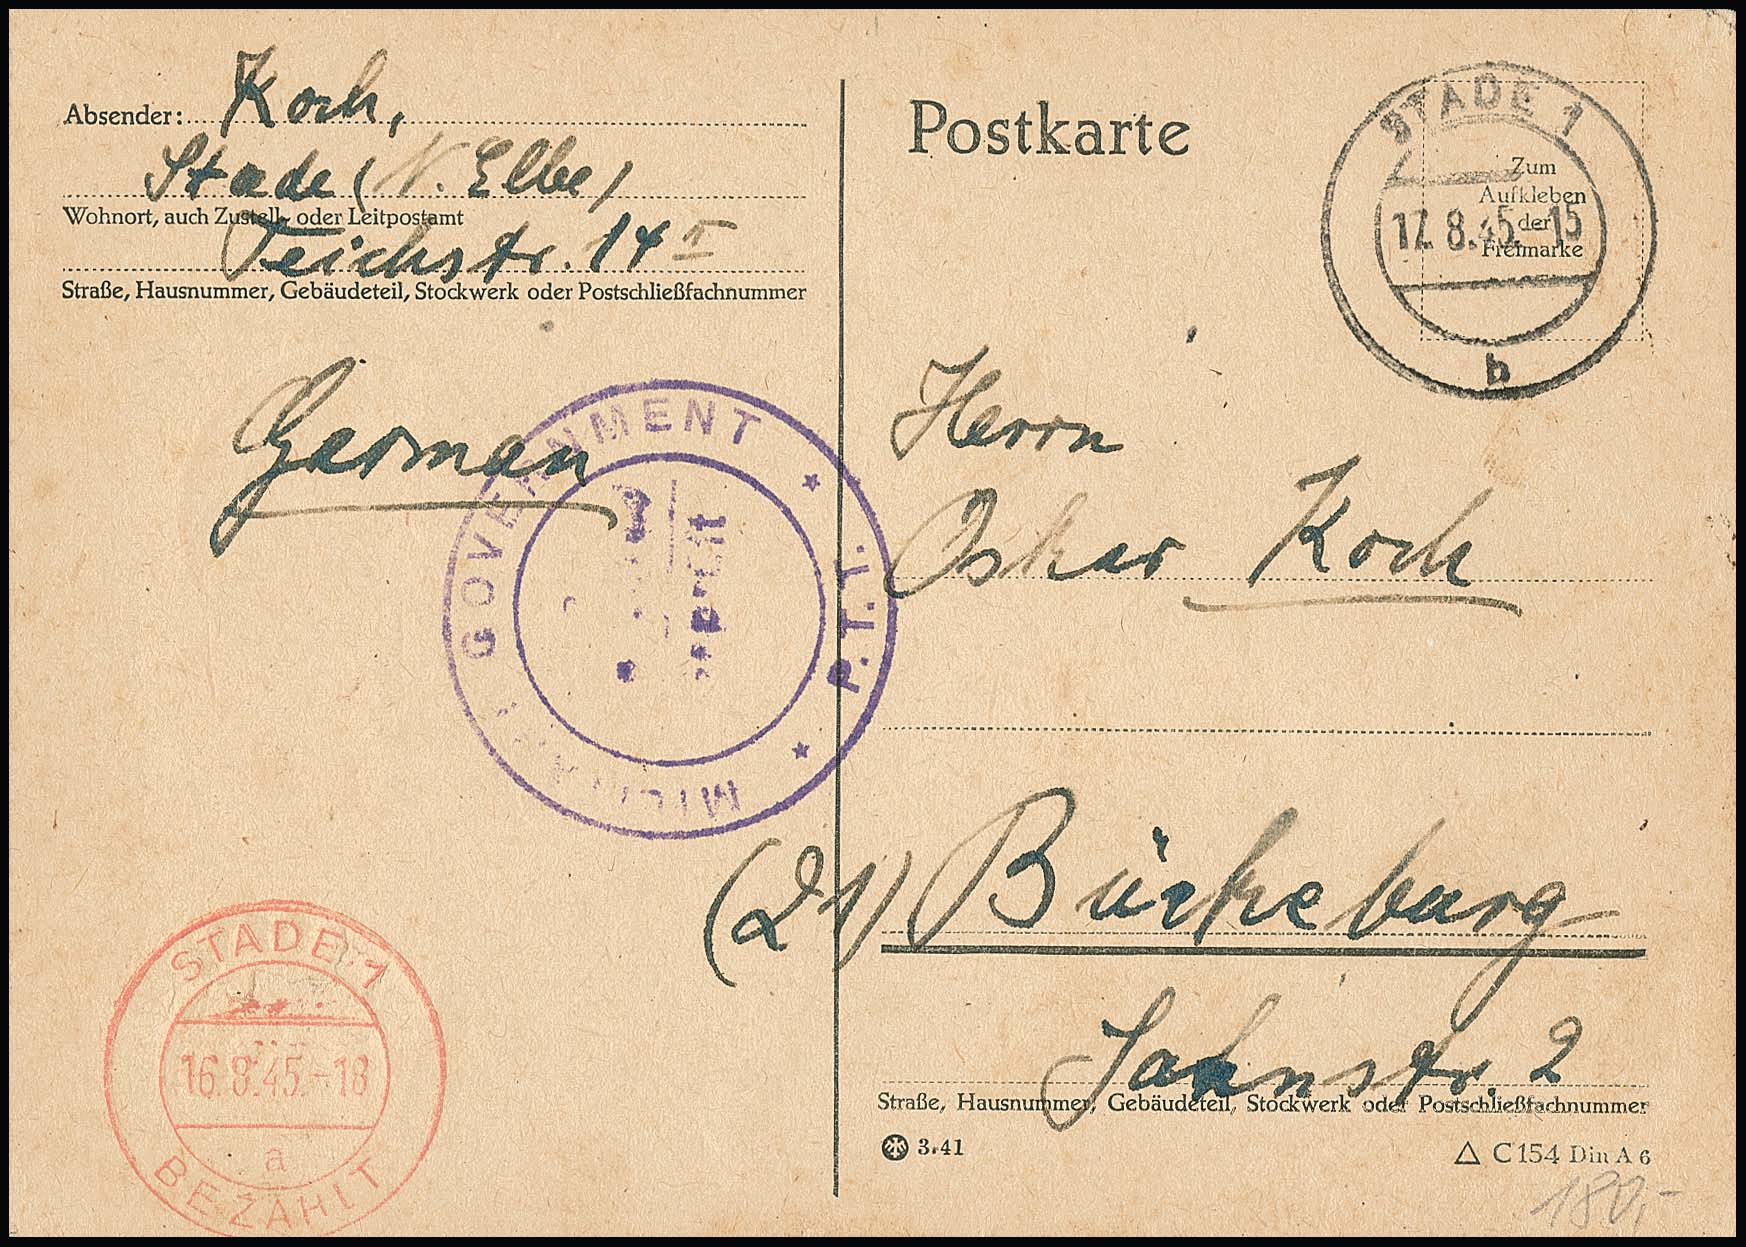 Absender: Koch,
Stade (N. Elbe)
Wohnort, auch Zustell- oder Leitpostamt
Teichstr. 14 II
Straße, Hausnummer, Gebäudeteil, Stockwerk oder Postschließfachnummer
German
GOVERNMENT * P.T.T. *
STADE 1
16.8.45.-18
a
BEZAHLT
Postkarte
STADE 1
17.8.45.-15
b
Zum
Aufkleben
der
Freimarke
Herrn
Oskar Koch
(21) Bückeburg
Jahnstr. 2
Straße, Hausnummer, Gebäudeteil, Stockwerk oder Postschließfachnummer
3.41
C 154 Din A 6
180,-